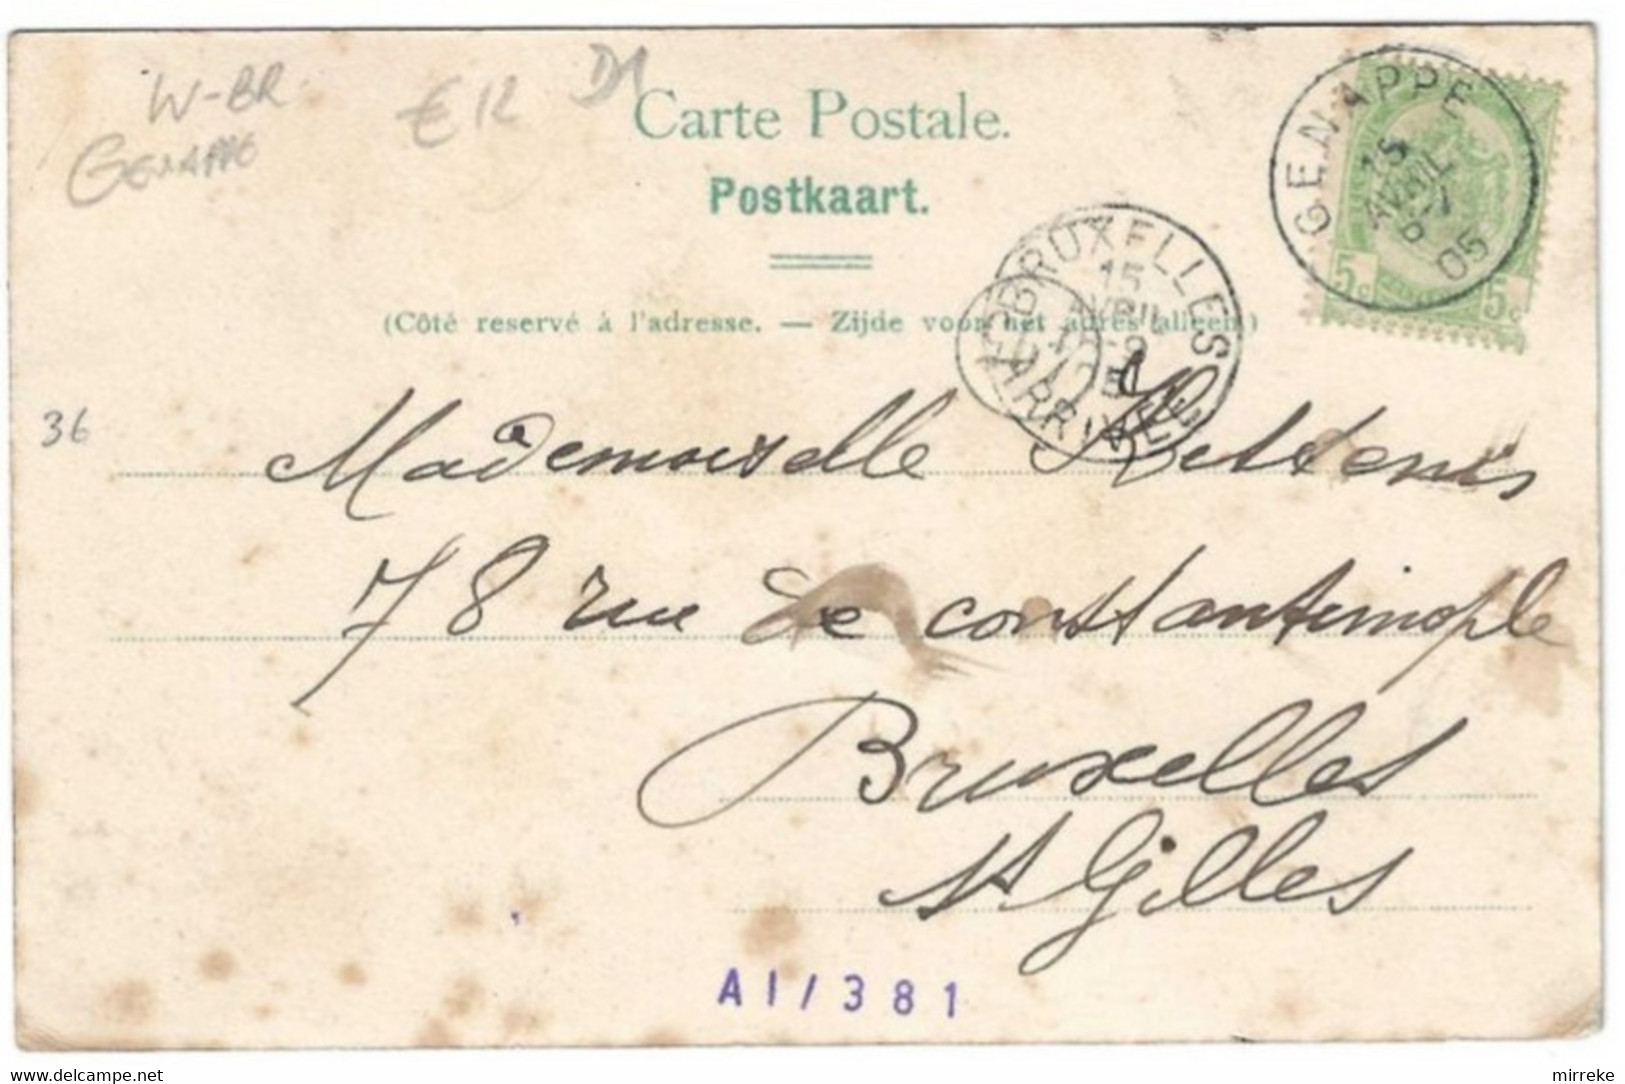 W-BR
GENAPPE
€ 12
D1
Carte Postale.
Postkaart.
(Côté reservé à l'adresse. — Zijde voor het adres alleen)
GENAPPE
15
AVRIL
6-7
05
BRUXELLES
15
AVRIL
ARRIVEE
36
Mademoiselle Kettenis
78 rue de constantinople
Bruxelles
St Gilles
AI/381
5c 5c
mirreke